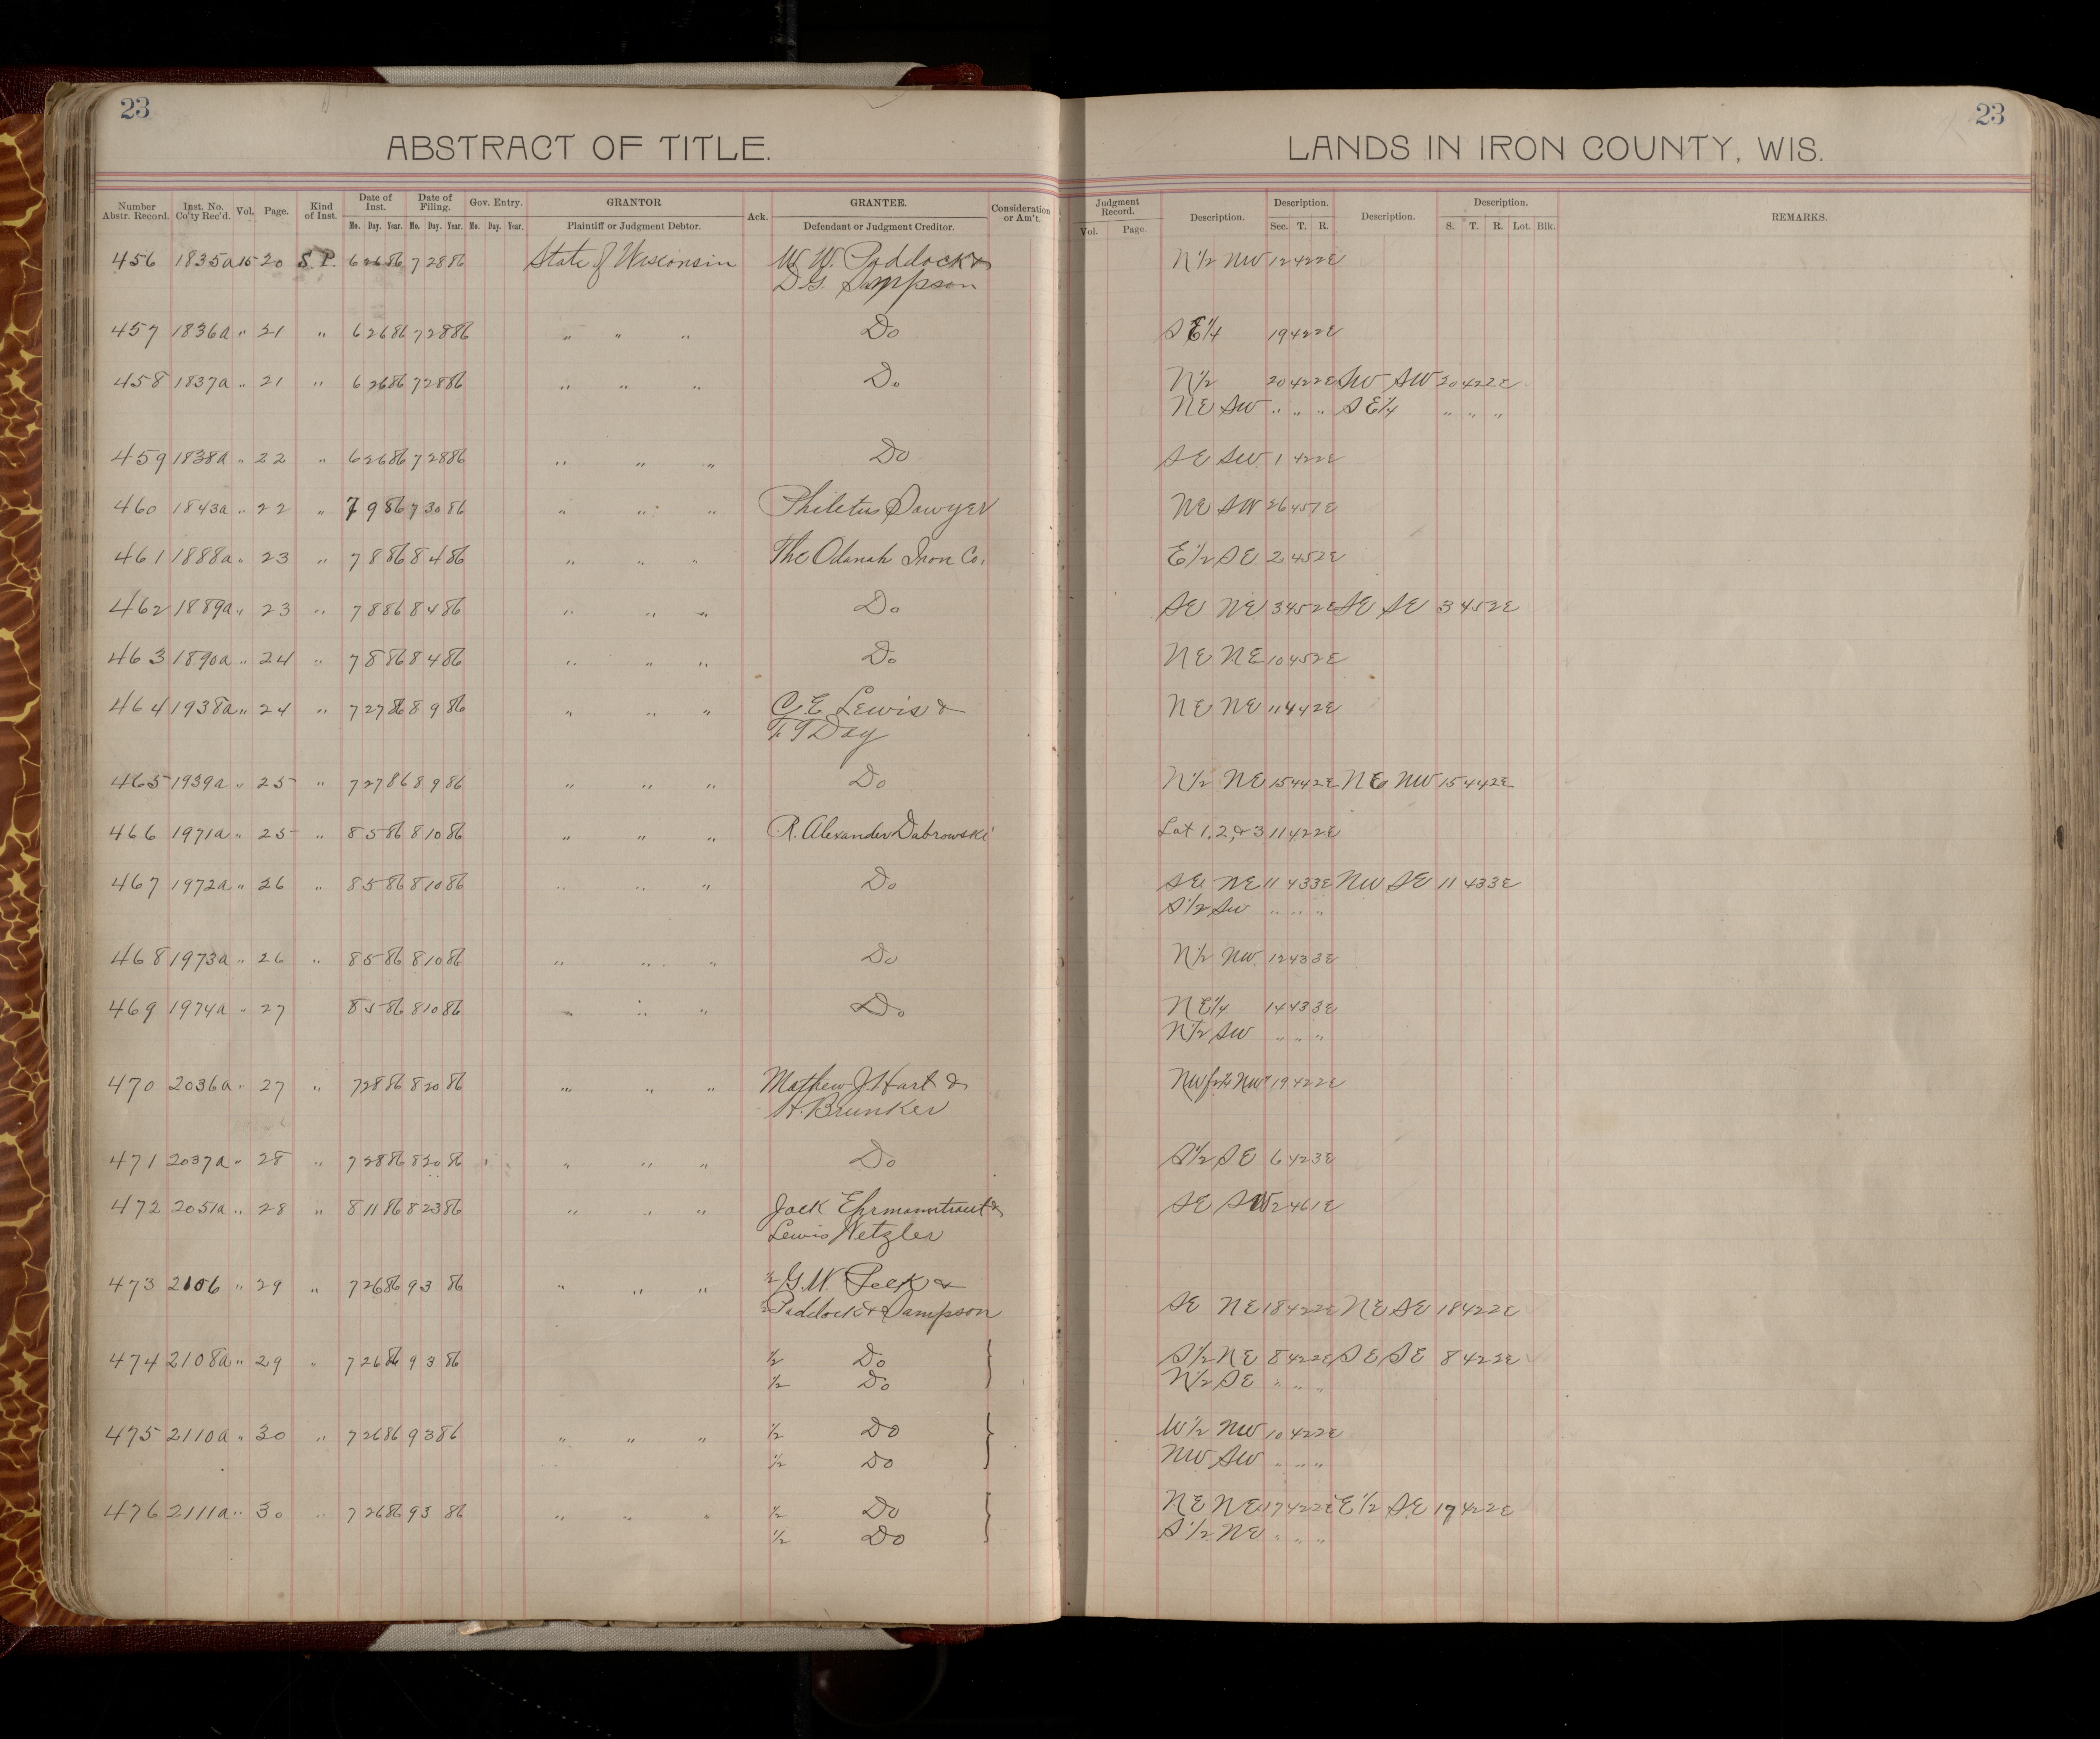 23
23
ABSTRACT OF TITLE.
LANDS IN IRON COUNTY, WIS.
Number Abstr. Record. Inst. No. Co'ty Rec'd. Vol. Page. Kind of Inst. Date of Inst. Date of Filing. Gov. Entry. GRANTOR Ack. GRANTEE. Consideration or Am't. Judgment Record. Description. Description. Description. Description. REMARKS.
Mo. Day. Year. Mo. Day. Year. Mo. Day. Year. Plaintiff or Judgment Debtor. Defendant or Judgment Creditor. Vol. Page. Sec. T. R. S. T. R. Lot. Blk.
456 1835a 15 20 S.P. 6 26 86 7 28 86 State of Wisconsin W. W. Paddock & N 1/2 NW 12 42 2E
D. G. Sampson
457 1836a " 21 " 6 26 86 7 28 86 " " " Do SE 1/4 19 42 2E
458 1837a " 21 " 6 26 86 7 28 86 " " " Do N 1/2 20 42 2E SW SW 20 42 2E
NE SW " " " SE 1/4 " " "
459 1838a " 22 " 6 26 86 7 28 86 " " " Do SE SW 1 42 2E
460 1843a " 22 " 7 9 86 7 30 86 " " " Philetus Sawyer NE SW 26 45 1E
461 1888a " 23 " 7 8 86 8 4 86 " " " The Odanah Iron Co. E 1/2 SE 2 45 2E
462 1889a " 23 " 7 8 86 8 4 86 " " " Do SE NE 3 45 2E SE SE 3 45 2E
463 1890a " 24 " 7 8 86 8 4 86 " " " Do NE NE 10 45 2E
464 1938a " 24 " 7 27 86 8 9 86 " " " C. E. Lewis & NE NE 11 44 2E
Day
465 1939a " 25 " 7 27 86 8 9 86 " " " Do N 1/2 NE 15 44 2E NE NW 15 44 2E
466 1971a " 25 " 8 5 86 8 10 86 " " " R. Alexander Dabrowski Lot 1, 2, & 3 11 42 2E
467 1972a " 26 " 8 5 86 8 10 86 " " " Do SE NE 11 43 3E NW SE 11 43 3E
S 1/2 SW " " "
468 1973a " 26 " 8 5 86 8 10 86 " " " Do N 1/2 NW 12 43 3E
469 1974a " 27 8 5 86 8 10 86 " " " Do NE 1/4 14 43 3E
N 1/2 SW " " "
470 2036a " 27 " 7 28 86 8 20 86 " " " Mathew J. Hart & NW frl NW 19 42 2E
H. Brunker
471 2037a " 28 " 7 28 86 8 20 86 " " " Do S 1/2 SE 6 42 3E
472 2051a " 28 " 8 11 86 8 23 86 " " " Jack Ehrmanntraut & SE SW 2 46 1E
Lewis Wetzler
473 2106 " 29 " 7 26 86 9 3 86 " " " 1/2 G. W. Peck &
1/2 Paddock & Sampson SE NE 18 42 2E NE SE 18 42 2E
474 2108a " 29 " 7 26 86 9 3 86 1/2 Do } S 1/2 NE 8 42 2E SE SE 8 42 2E
1/2 Do N 1/2 SE " " "
475 2110a " 30 " 7 26 86 9 3 86 " " " 1/2 Do } W 1/2 NW 10 42 2E
1/2 Do NW SW " " "
476 2111a " 30 " 7 26 86 9 3 86 " " " 1/2 Do } NE NE 17 42 2E E 1/2 SE 17 42 2E
1/2 Do S 1/2 NE " " "